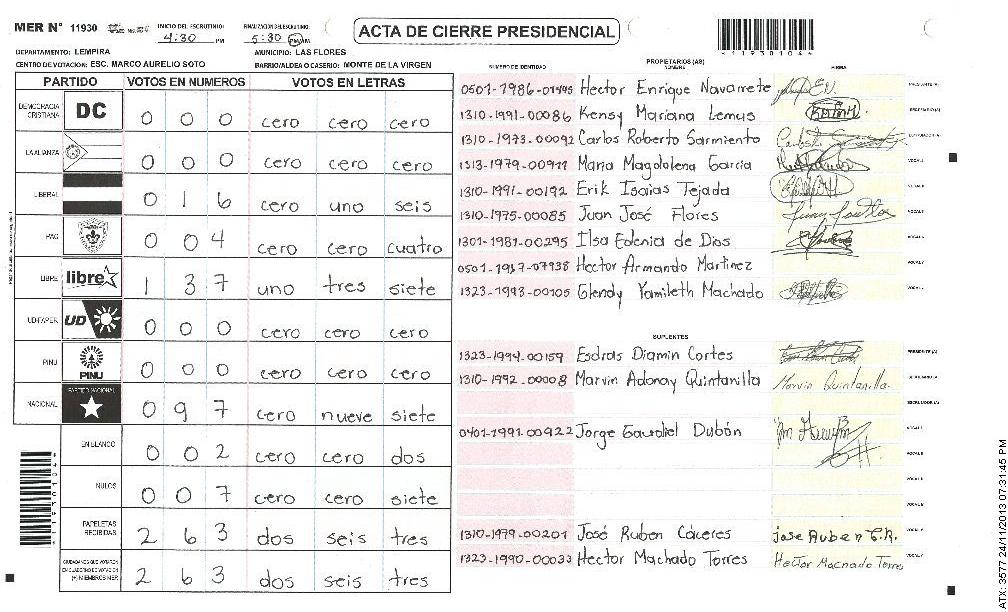 MER N° 11930
INICIO DEL ESCRUTINIO:
4:30 PM
FINALIZACION DEL ESCRUTINIO:
5:30 PM
ACTA DE CIERRE PRESIDENCIAL
11930104
DEPARTAMENTO: LEMPIRA
MUNICIPIO: LAS FLORES
CENTRO DE VOTACION: ESC. MARCO AURELIO SOTO
BARRIO/ALDEA O CASERIO: MONTE DE LA VIRGEN
PARTIDO VOTOS EN NUMEROS VOTOS EN LETRAS
DEMOCRACIA CRISTIANA DC 0 0 0 cero cero cero
LA ALIANZA 0 0 0 cero cero cero
LIBERAL 0 1 6 cero uno seis
PAC 0 0 4 cero cero cuatro
LIBRE libre 1 3 7 uno tres siete
UD-FAPER UD 0 0 0 cero cero cero
PINU PINU 0 0 0 cero cero cero
NACIONAL PARTIDO NACIONAL 0 9 7 cero nueve siete
EN BLANCO 0 0 2 cero cero dos
NULOS 0 0 7 cero cero siete
PAPELETAS RECIBIDAS 2 6 3 dos seis tres
CIUDADANOS QUE VOTARON EN CUADERNO DE VOTACION (+) MIEMBROS MER 2 6 3 dos seis tres
11930104
NUMERO DE IDENTIDAD PROPIETARIOS (AS) NOMBRE FIRMA
0501-1986-01445 Hector Enrique Navarrete PRESIDENTE (A)
1310-1991-00086 Kensy Mariana Lemus SECRETARIO (A)
1310-1973-00092 Carlos Roberto Sarmiento ESCRUTADOR (A)
1313-1979-00911 Maria Magdolena Garcia VOCAL I
1310-1991-00192 Erik Isaias Tejada VOCAL II
1310-1975-00085 Juan José Flores
1301-1981-00295 Ilsa Edenia de Dios
Hector Armando Martinez VOCAL V
1323-1993-00105 Glendy Yamileth Machado
SUPLENTES
1323-1994-00159 Esdras Diamin Cortes PRESIDENTE (A)
1310-1992-00008 Marvin Adonay Quintanilla Marvin Quintanilla. SECRETARIO (A)
ESCRUTADOR (A)
0401-1991-00922 Jorge Dubón VOCAL I
VOCAL II
1310-1979-00201 José Ruben Cáceres Jose Ruben C.R.
1323-1990-00033 Hector Machado Torres Hector Machado Torres
ATX: 3577 24/11/2013 07:31:45 PM